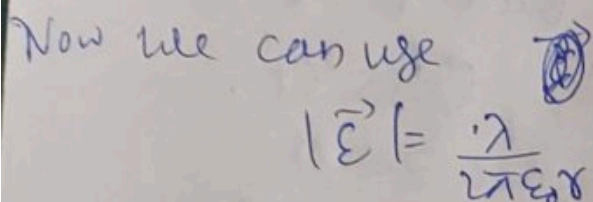 Now we can use
|E⃗| = λ / 2πε₀r